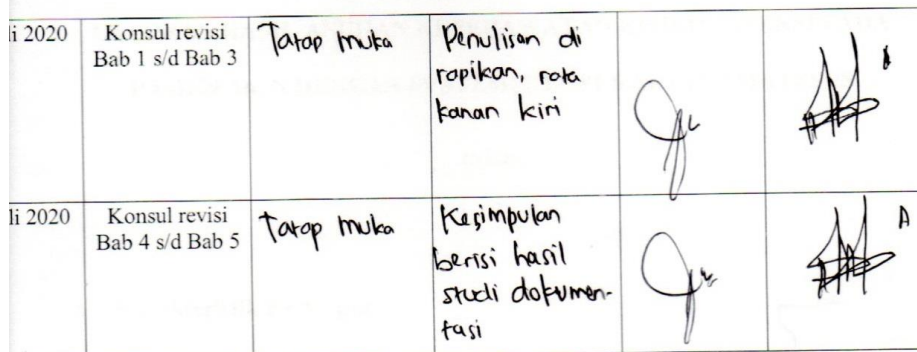 li 2020
Konsul revisi
Bab 1 s/d Bab 3
Tatap muka
Penulisan di
rapikan, rata
kanan kiri
li 2020
Konsul revisi
Bab 4 s/d Bab 5
Tatap muka
Kesimpulan
berisi hasil
studi dokumen-
tasi